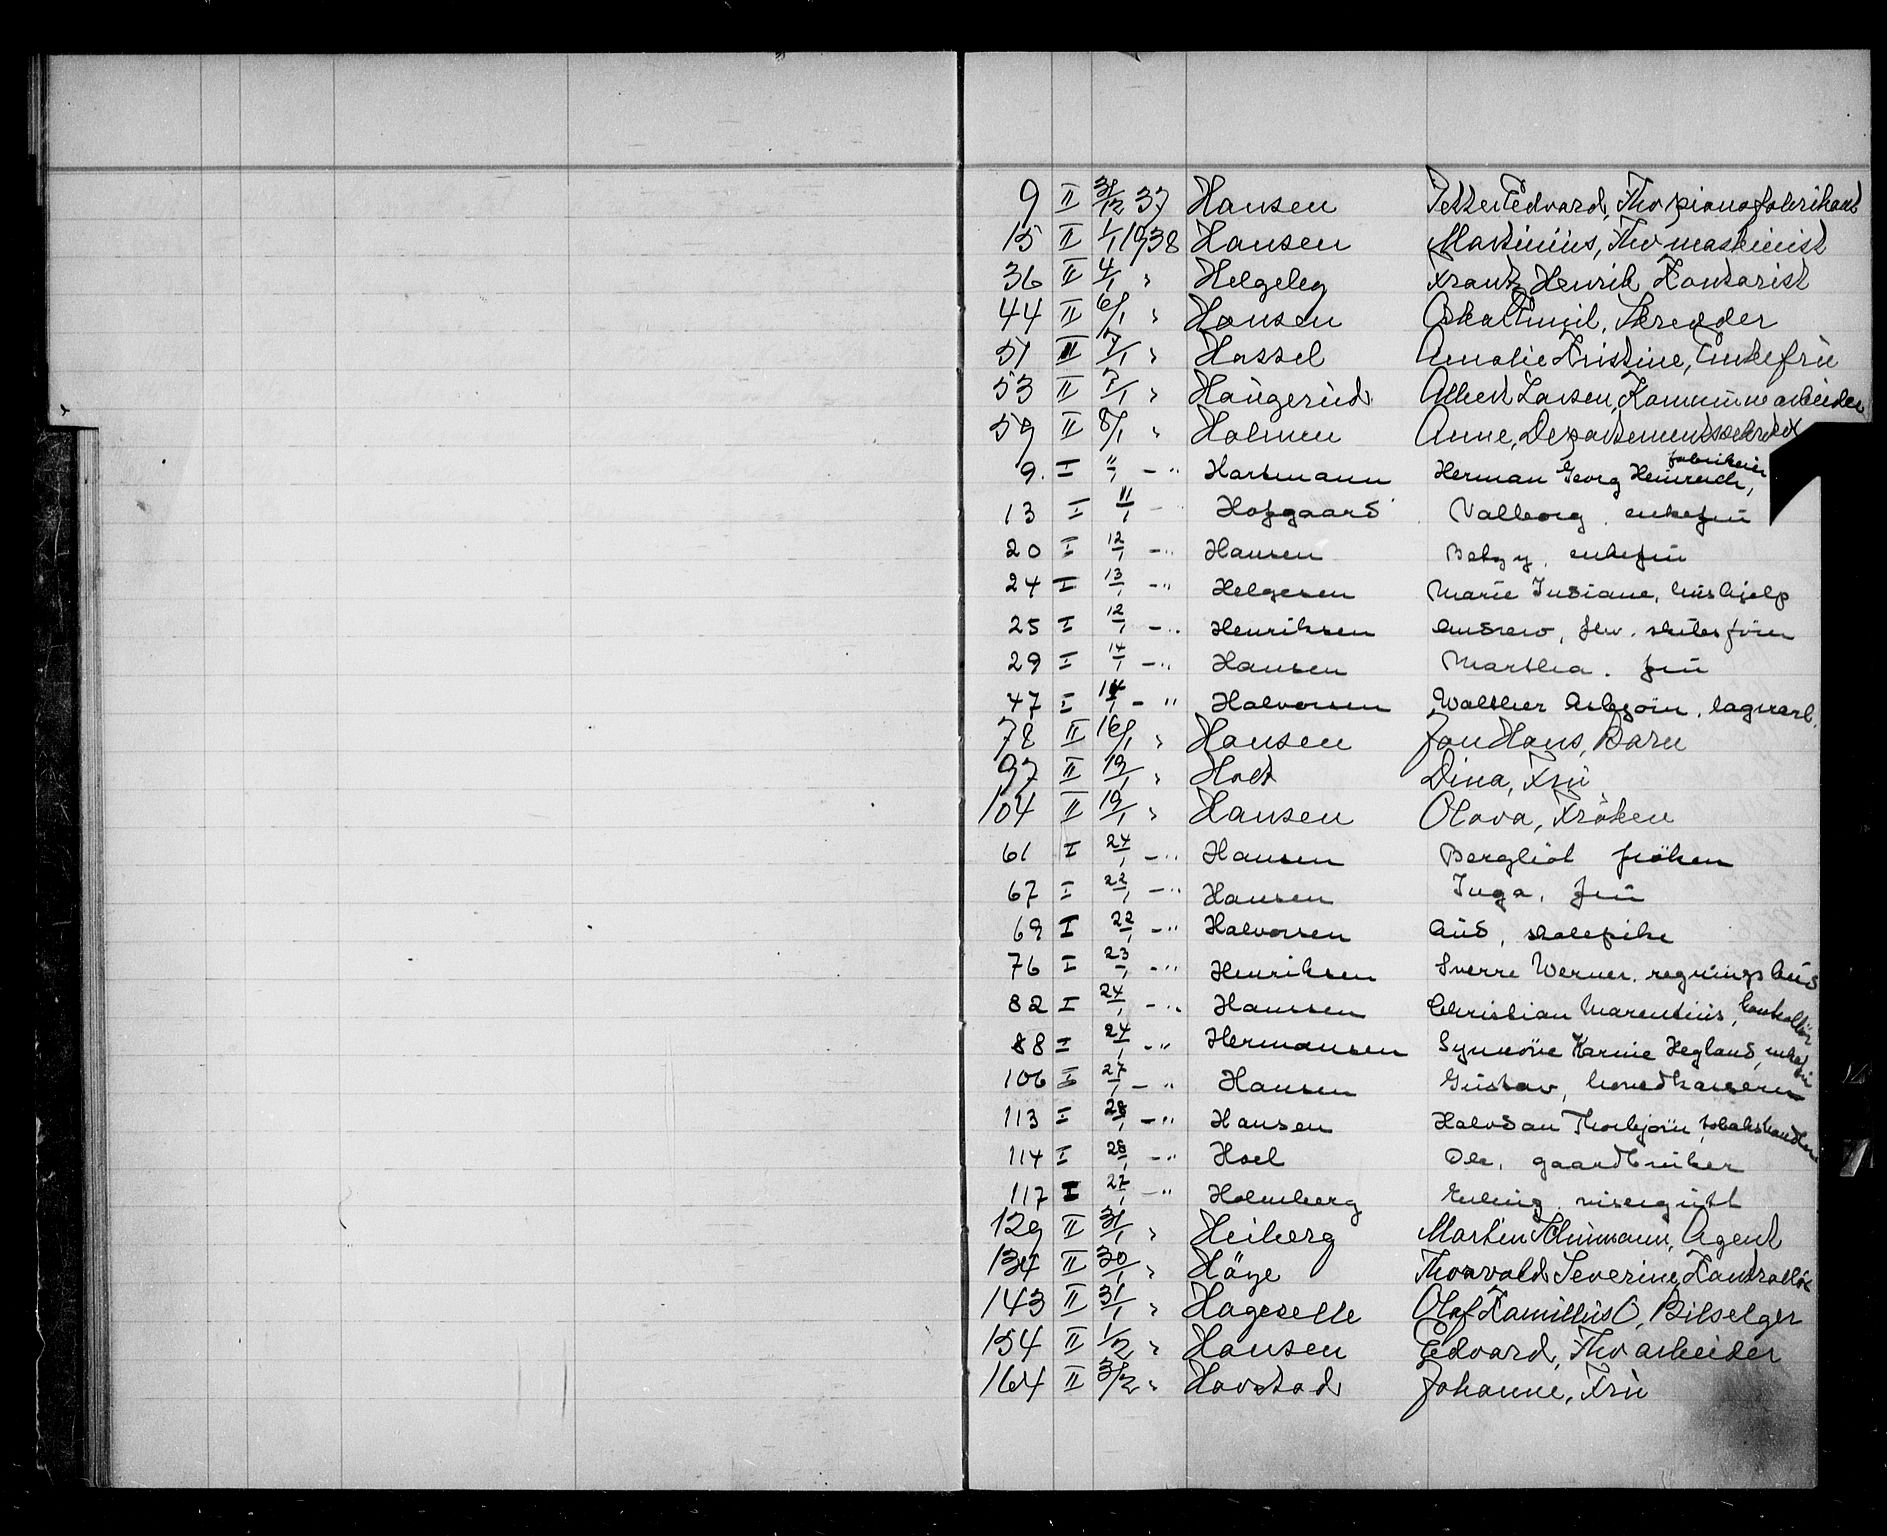 9 II 31/12 37 Hansen Petter Edvard, Fhv pianofabrikant
15 II 1/1 1938 Hansen Martinius, Fhv maskinist
36 II 4/1 " Helgeleg Frantz Henrik Kontorist
44 II 6/1 " Hansen Oskar Emil, Skredder
51 II 7/1 " Hassel Amalie Kristine, Enkefru
53 II 7/1 " Haugerud Albert Larsen, Kommunearbeider
59 II 8/1 " Holmen Anne, Departementssekret
9. I "/1 - " Hartmann Herman Georg Heinrich, fabrikeier
13 I 11/1 - " Hofgaard Valborg. enkefru
20 I 12/1 - " Hansen Betzy. enkefru
24 I 13/1 - " Helgesen Marie Indiane, hushjelp
25 I 12/1 - " Henriksen Andrew, fhv. skibsförer
29 I 14/1 - " Hansen Martha. fru
47 I 14/1 - " Halvorsen Walther Asbjörn, lagerarb.
78 II 16/1 " Hansen Jan Hans, Barn
97 II 19/1 " Holt Dina, Fru
104 II 19/1 " Hansen Olava, Fröken
61 I 24/1 - " Hansen Bergliot fröken
67 I 22/1 - " Hansen Inga. fru
69 I 22/1 - " Halvorsen Aud, skolepike
76 I 23/1 - " Henriksen Sverre Werner. regningsbud
82 I 24/1 - " Hanssen Christian Marentius, kontrollör
88 I 24/1 - " Hermansen Synnöve Karine Hegland, enkefru
106 I 27/1 - " Hansen Gustav, hovedkasserer
113 I 28/1 - " Hansen Halvdan Thorbjörn, tobakshandler
114 I 28/1 - " Hoel Ole, gaardbruker
117 I 27/1 - " Holmberg Erling, visergutt
129 II 31/1 " Heiberg Martin Schumann, Agent
134 II 30/1 " Höye Thorvald Severin, Kontrollör
143 II 31/1 " Hageselle Olaf Kamillus O, Bilselger
154 II 1/2 " Hansen Edvard, Fhv arbeider
164 II 3/2 " Havstad Johanne, Fru